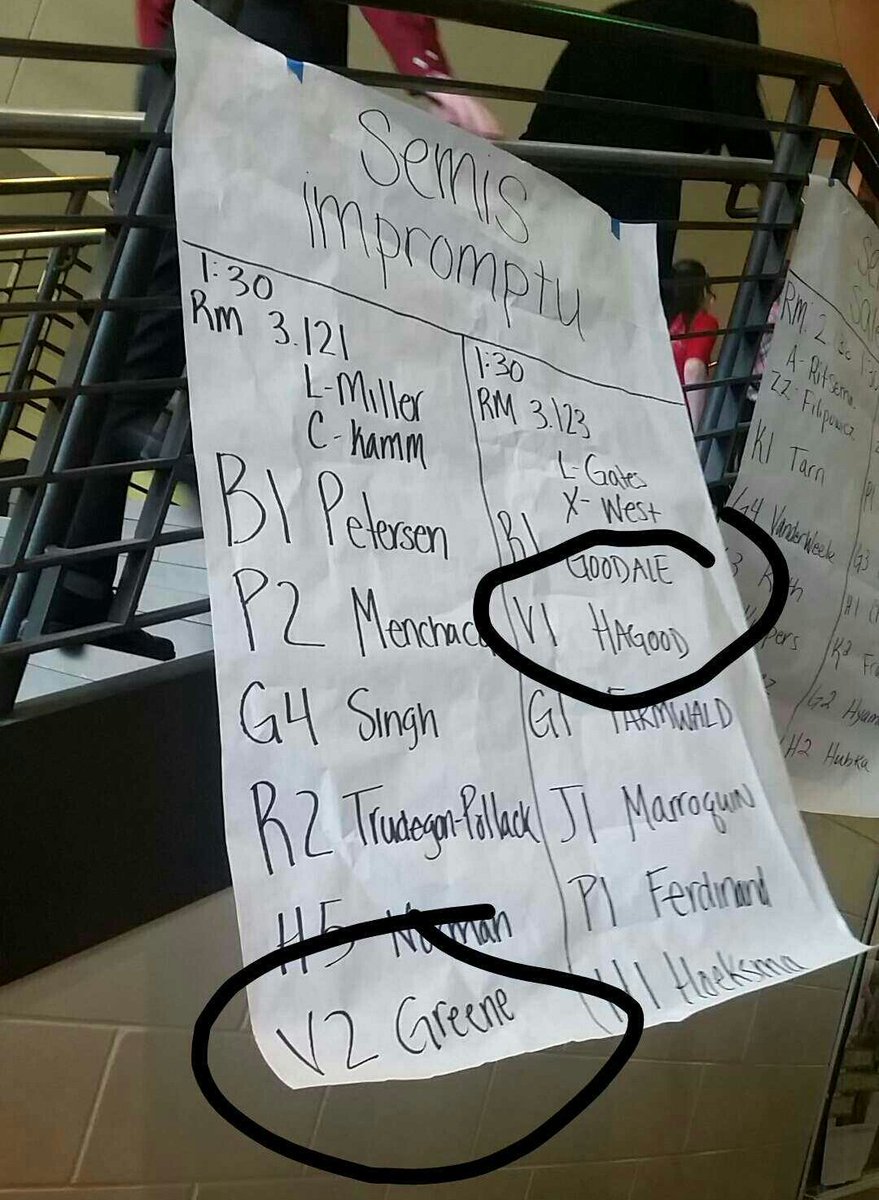 Semis
Impromptu
1:30
Rm 3.121
L-Miller
C-Kamm
B1 Petersen
P2 Menchaca
G4 Singh
R2 Trudegon-Pollack
H5 Norman
V2 Greene
1:30
RM 3.123
L-Gates
X-West
R1 GOODALE
V1 HAGOOD
G1 FARMWALD
J1 Marroquin
P1 Ferdinand
H1 Hoeksma
RM. 2.
A-Ritsema
ZZ-Filipowicz
K1 Tarn
G4 VanderWeele
G3
H1
K2
G2 Hyam
H2 Hubka